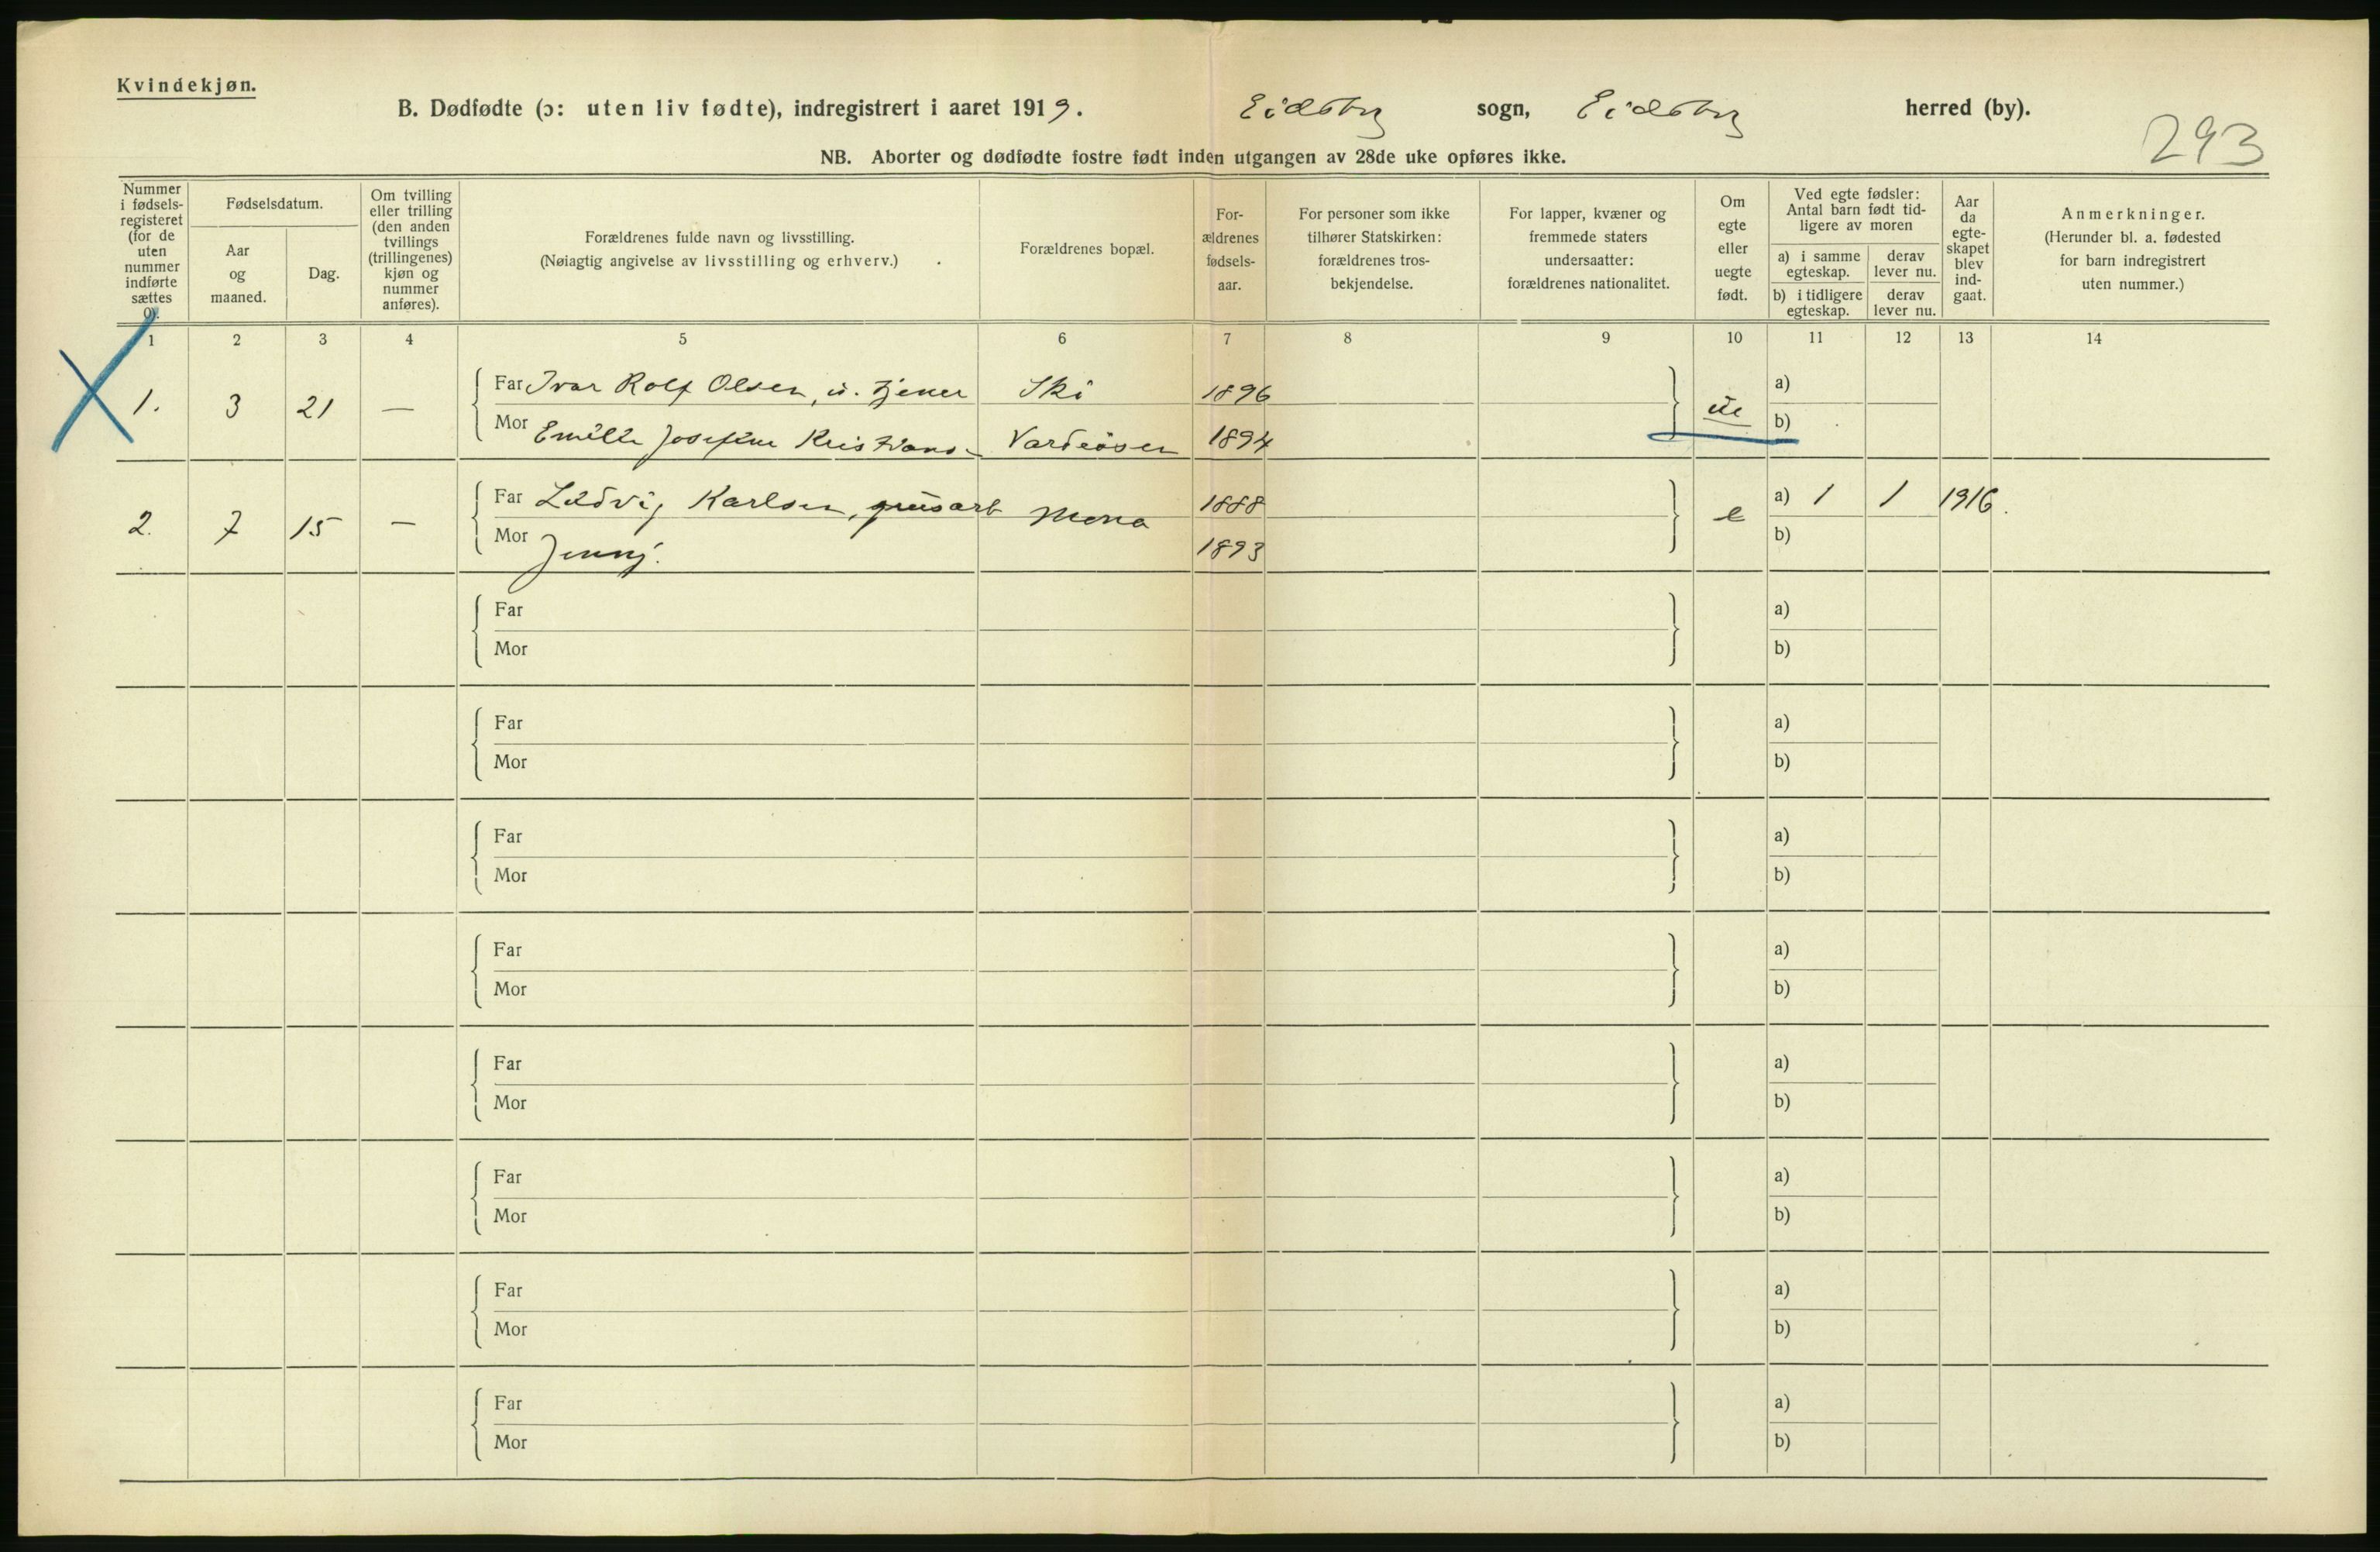 Kvindekjøn.
B. Dødfødte (ɔ: uten liv fødte), indregistrert i aaret 1919. Eidsbrg sogn, Eidsbrg herred (by).
293
NB. Aborter og dødfødte fostre født inden utgangen av 28de uke opføres ikke.
Nummer i fødsels-registeret (for de uten nummer indførte sættes 0).
Fødselsdatum.
Aar og maaned.
Dag.
Om tvilling eller trilling (den anden tvillings (trillingenes) kjøn og nummer anføres).
Forældrenes fulde navn og livsstilling.
(Nøiagtig angivelse av livsstilling og erhverv.)
Forældrenes bopæl.
For-ældrenes fødsels-aar.
For personer som ikke tilhører Statskirken: forældrenes tros-bekjendelse.
For lapper, kvæner og fremmede staters undersaatter: forældrenes nationalitet.
Om egte eller uegte født.
Ved egte fødsler: Antal barn født tid-ligere av moren
a) i samme egteskap.
derav lever nu.
b) i tidligere egteskap.
derav lever nu.
Aar da egte-skapet blev ind-gaat.
Anmerkninger.
(Herunder bl. a. fødested for barn indregistrert uten nummer.)
1 2 3 4 5 6 7 8 9 10 11 12 13 14
1. 3 21 — Far Ivar Rolf Olsen, u. tjener Ski 1896 ue a)
Mor Emilie Josefine Kristians. Vardeåsen 1894 b)
2. 7 15 — Far Ludvig Karlsen, Mona 1888 e a) 1 1 1916.
Mor Jenny. 1893 b)
Far a)
Mor b)
Far a)
Mor b)
Far a)
Mor b)
Far a)
Mor b)
Far a)
Mor b)
Far a)
Mor b)
Far a)
Mor b)
Far a)
Mor b)